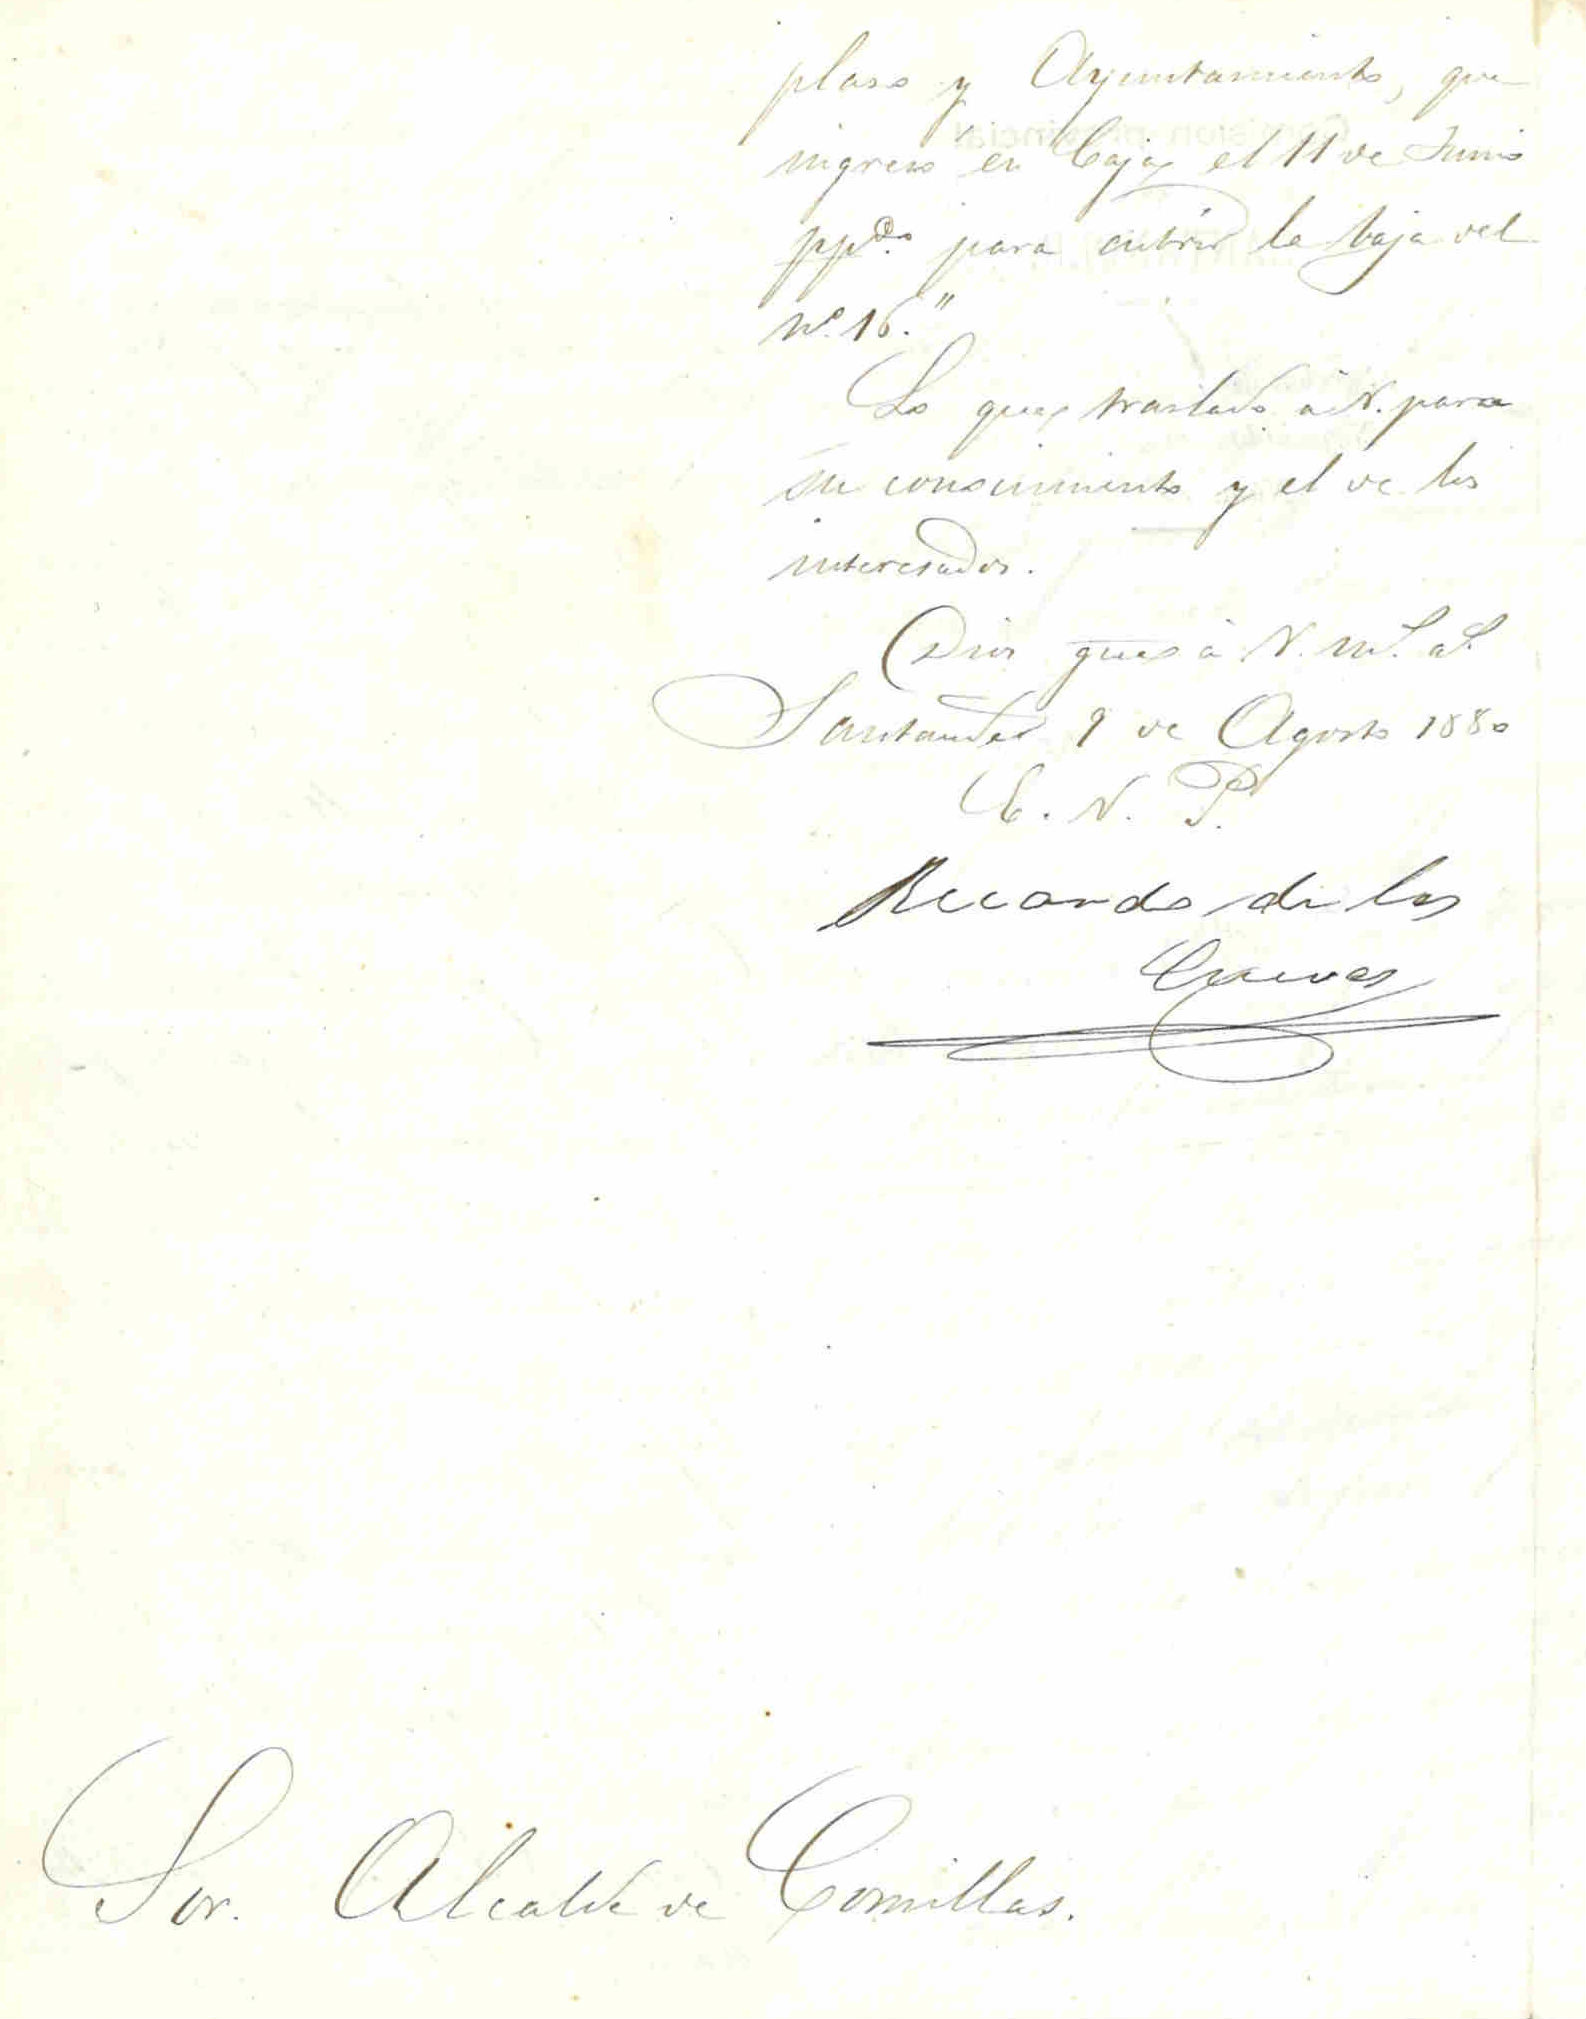 plazo y Ayuntamiento, que
ingresó en Caja el 11 de Junio
ppdo. para cubrir la baja del
nº. 16."
Lo que traslado á V. para
su conocimiento y el de los
interesados.
Dios gue á V. ms. as.
Santander 9 de Agosto 1880
E. V. P.
Ricardo de las
Cuevas
Sor. Alcalde de Comillas.